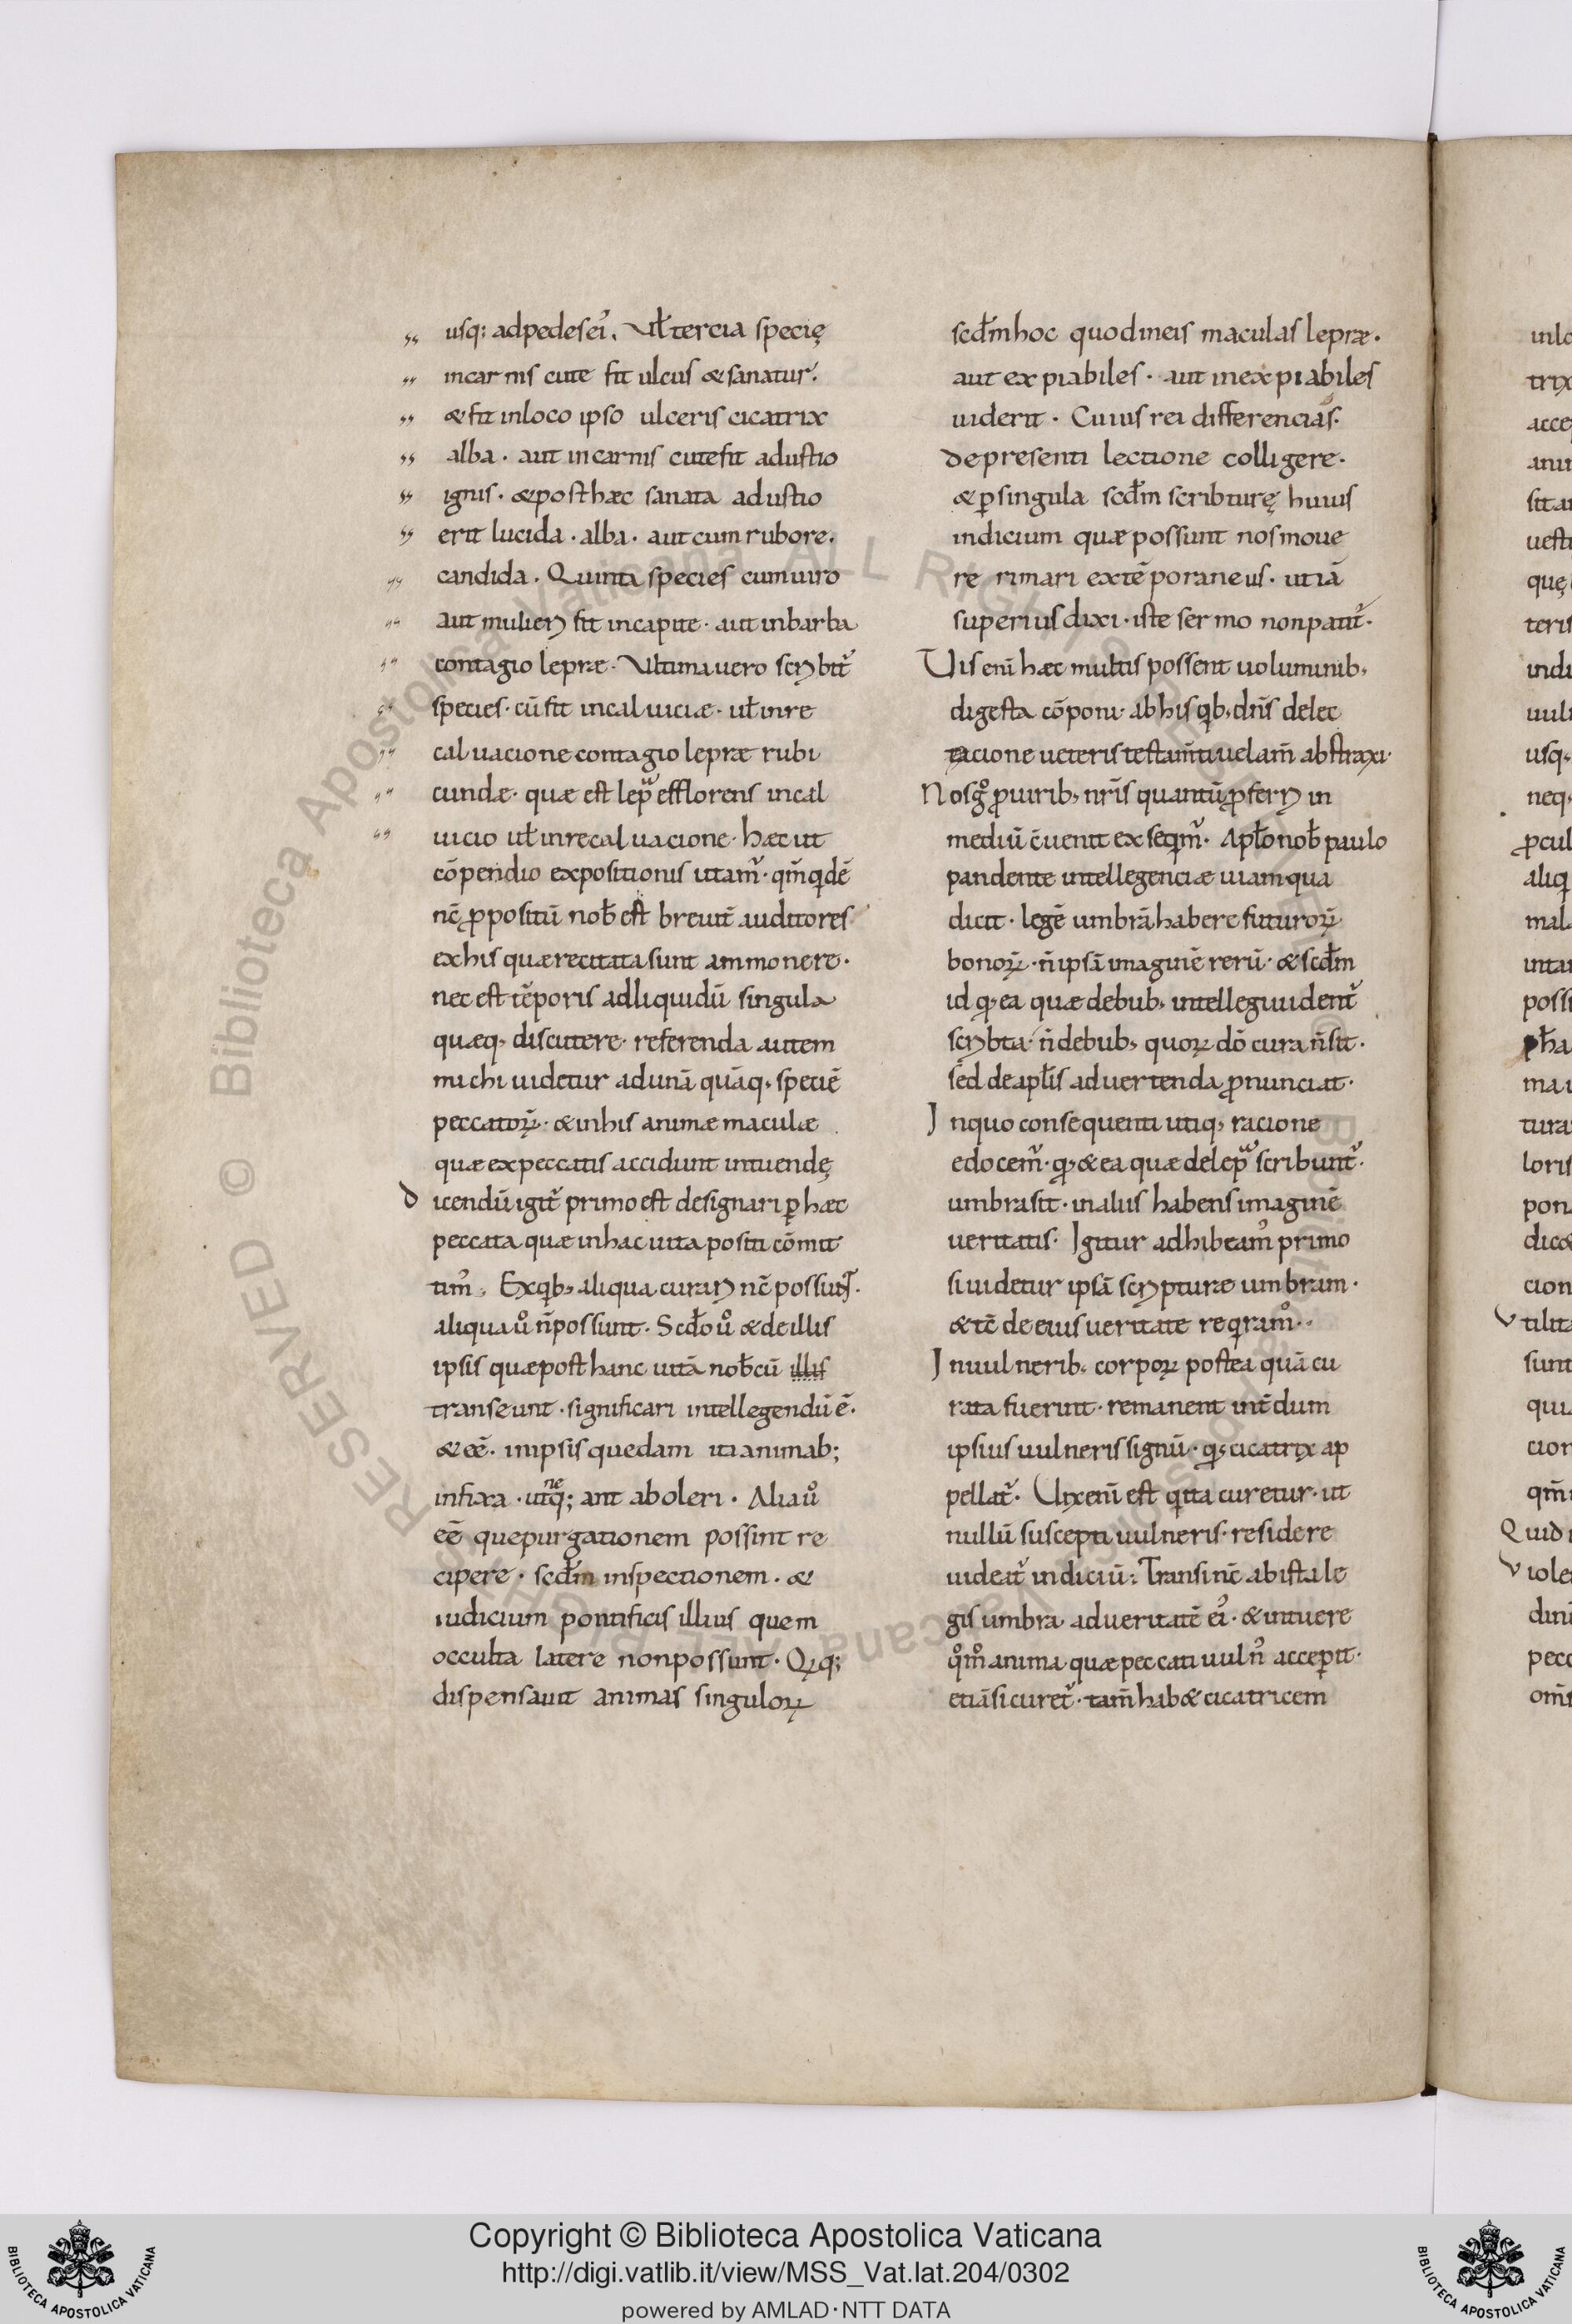 usq; adpedes ei᾽. Vł tercia specię
incarnis cute fit ulcus & sanatur.
& fit inloco ipso ulceris cicatrix
alba · aut incarnis cute fit adustio
ignis · & posthæc sanata adustio
erit lucida · alba · aut cum rubore.
candida . Quinta species cumuiro
aut mulieri fit incapite · aut inbarba
contagio lepræ · Vltima uero scribit᷑
species · cū fit incaluiciæ · uł inre
caluacione contagio lepræ rubi
cundæ · quæ est lepra efflorens incal
uicio uł inrecaluacione · hæc ut
cōpendio expositionis utam᷑ · qm̄ qidē
nc̄ ꝓpositū nob̄ est breuit̄ auditores
exhis quæ recitata sunt ammonere ·
nec est tēporis adliquidū singula
quæq, discutere · referenda autem
michi uidetur adunā quāq, speciē
peccatoꝝ · & inhis animæ maculæ
quæ expeccatis accidunt intuendę
dicendū igit᷑ primo est designari ꝑ hæc
peccata quæ inhac uita positi cōmit
tim᾽. Exqb, aliqua curari nc̄ possunt.
aliqua ů n̄ possunt · Scd̄o ů & deillis
ipsis quæ post hanc uitā nob̄cū illis
transeunt · significari intellegendū ē ·
& eē · inipsis quedam ita animab;
infixa · utneq; ant aboleri · Alia ů
eē que purgationem possint re
cipere · scd̄m inspectionem · &
iudicium pontificis illius quem
occulta latere nonpossunt · Qꝝq;
dispensauit animas singuloꝝ
scd̄m hoc quodineis maculas lepræ ·
aut expiabiles · aut inexpiabiles
uiderit · Cuius rei differencias ·
depresenti lectione colligere ·
& ꝑ singula scd̄m scribturę huius
indicium quæ possunt nos moue
re rimari extēporaneus · ut iā
superius dixi · iste sermo nonpatit᷑ ·
Uis enī hæc multis possent uoluminib,
digesta cōponi · abhis qb, dn̄s delec
tacione ueteris testam̄ti uelam̄ abstraxi·
Nosg̊ ꝓ uirib, nr̄is quantū ꝓferri in
mediū c̄uenit exseqm᷑ · Apło nob̄ paulo
pandente intellegenciæ uiam qua
dicit · legē umbrā habere futuroꝝ
bonoꝝ · n̄ ipsā imaginē rerū · & scd̄m
id qꝫ ea quæ debub, intellegi uident᷑
scribta · n̄ debub, quoꝝ dō cura n̄ sit ·
sed deapłis aduertenda ꝓnunciat ·
Inquo consequenti utiq, racione
edocem᷑ · qꝫ & ea quæ delepra scribunt᷑ ·
umbra sit · inaliis habens imaginē
ueritatis · Igitur adhibeam᾽ primo
si uidetur ipsā scripturæ umbram ·
& tc̄ de eius ueritate reqram᾽ ·
Inuulnerib. corpoꝝ postea quā cu
rata fuerint · remanent int̄dum
ipsius uulneris signū · qꝫ cicatrix ap
pellat᷑ · Uix enī est qita curetur · ut
nullū suscepti uulneris · residere
uideat᷑ indiciū : Transi nc̄ abista le
gis umbra adueritatē ei᾽ · & intuere
qůmo᷑ anima quæ peccati uuln᾽ acceꝑit ·
etiā si curet᷑ · tam̄ hab& cicatricem
Copyright © Biblioteca Apostolica Vaticana
http://digi.vatlib.it/view/MSS_Vat.lat.204/0302
powered by AMLAD·NTT DATA
BIBLIOTECA APOSTOLICA VATICANA
BIBLIOTECA APOSTOLICA VATICANA